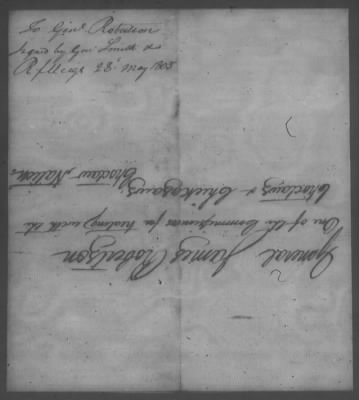 To Genl Robertson
Signed by Gov Smith &
R J Meigs 28 May 1805
General James Robertson
One of the Commissioners for treating with the
Choctaws & Chickasaws
Choctaw Nation